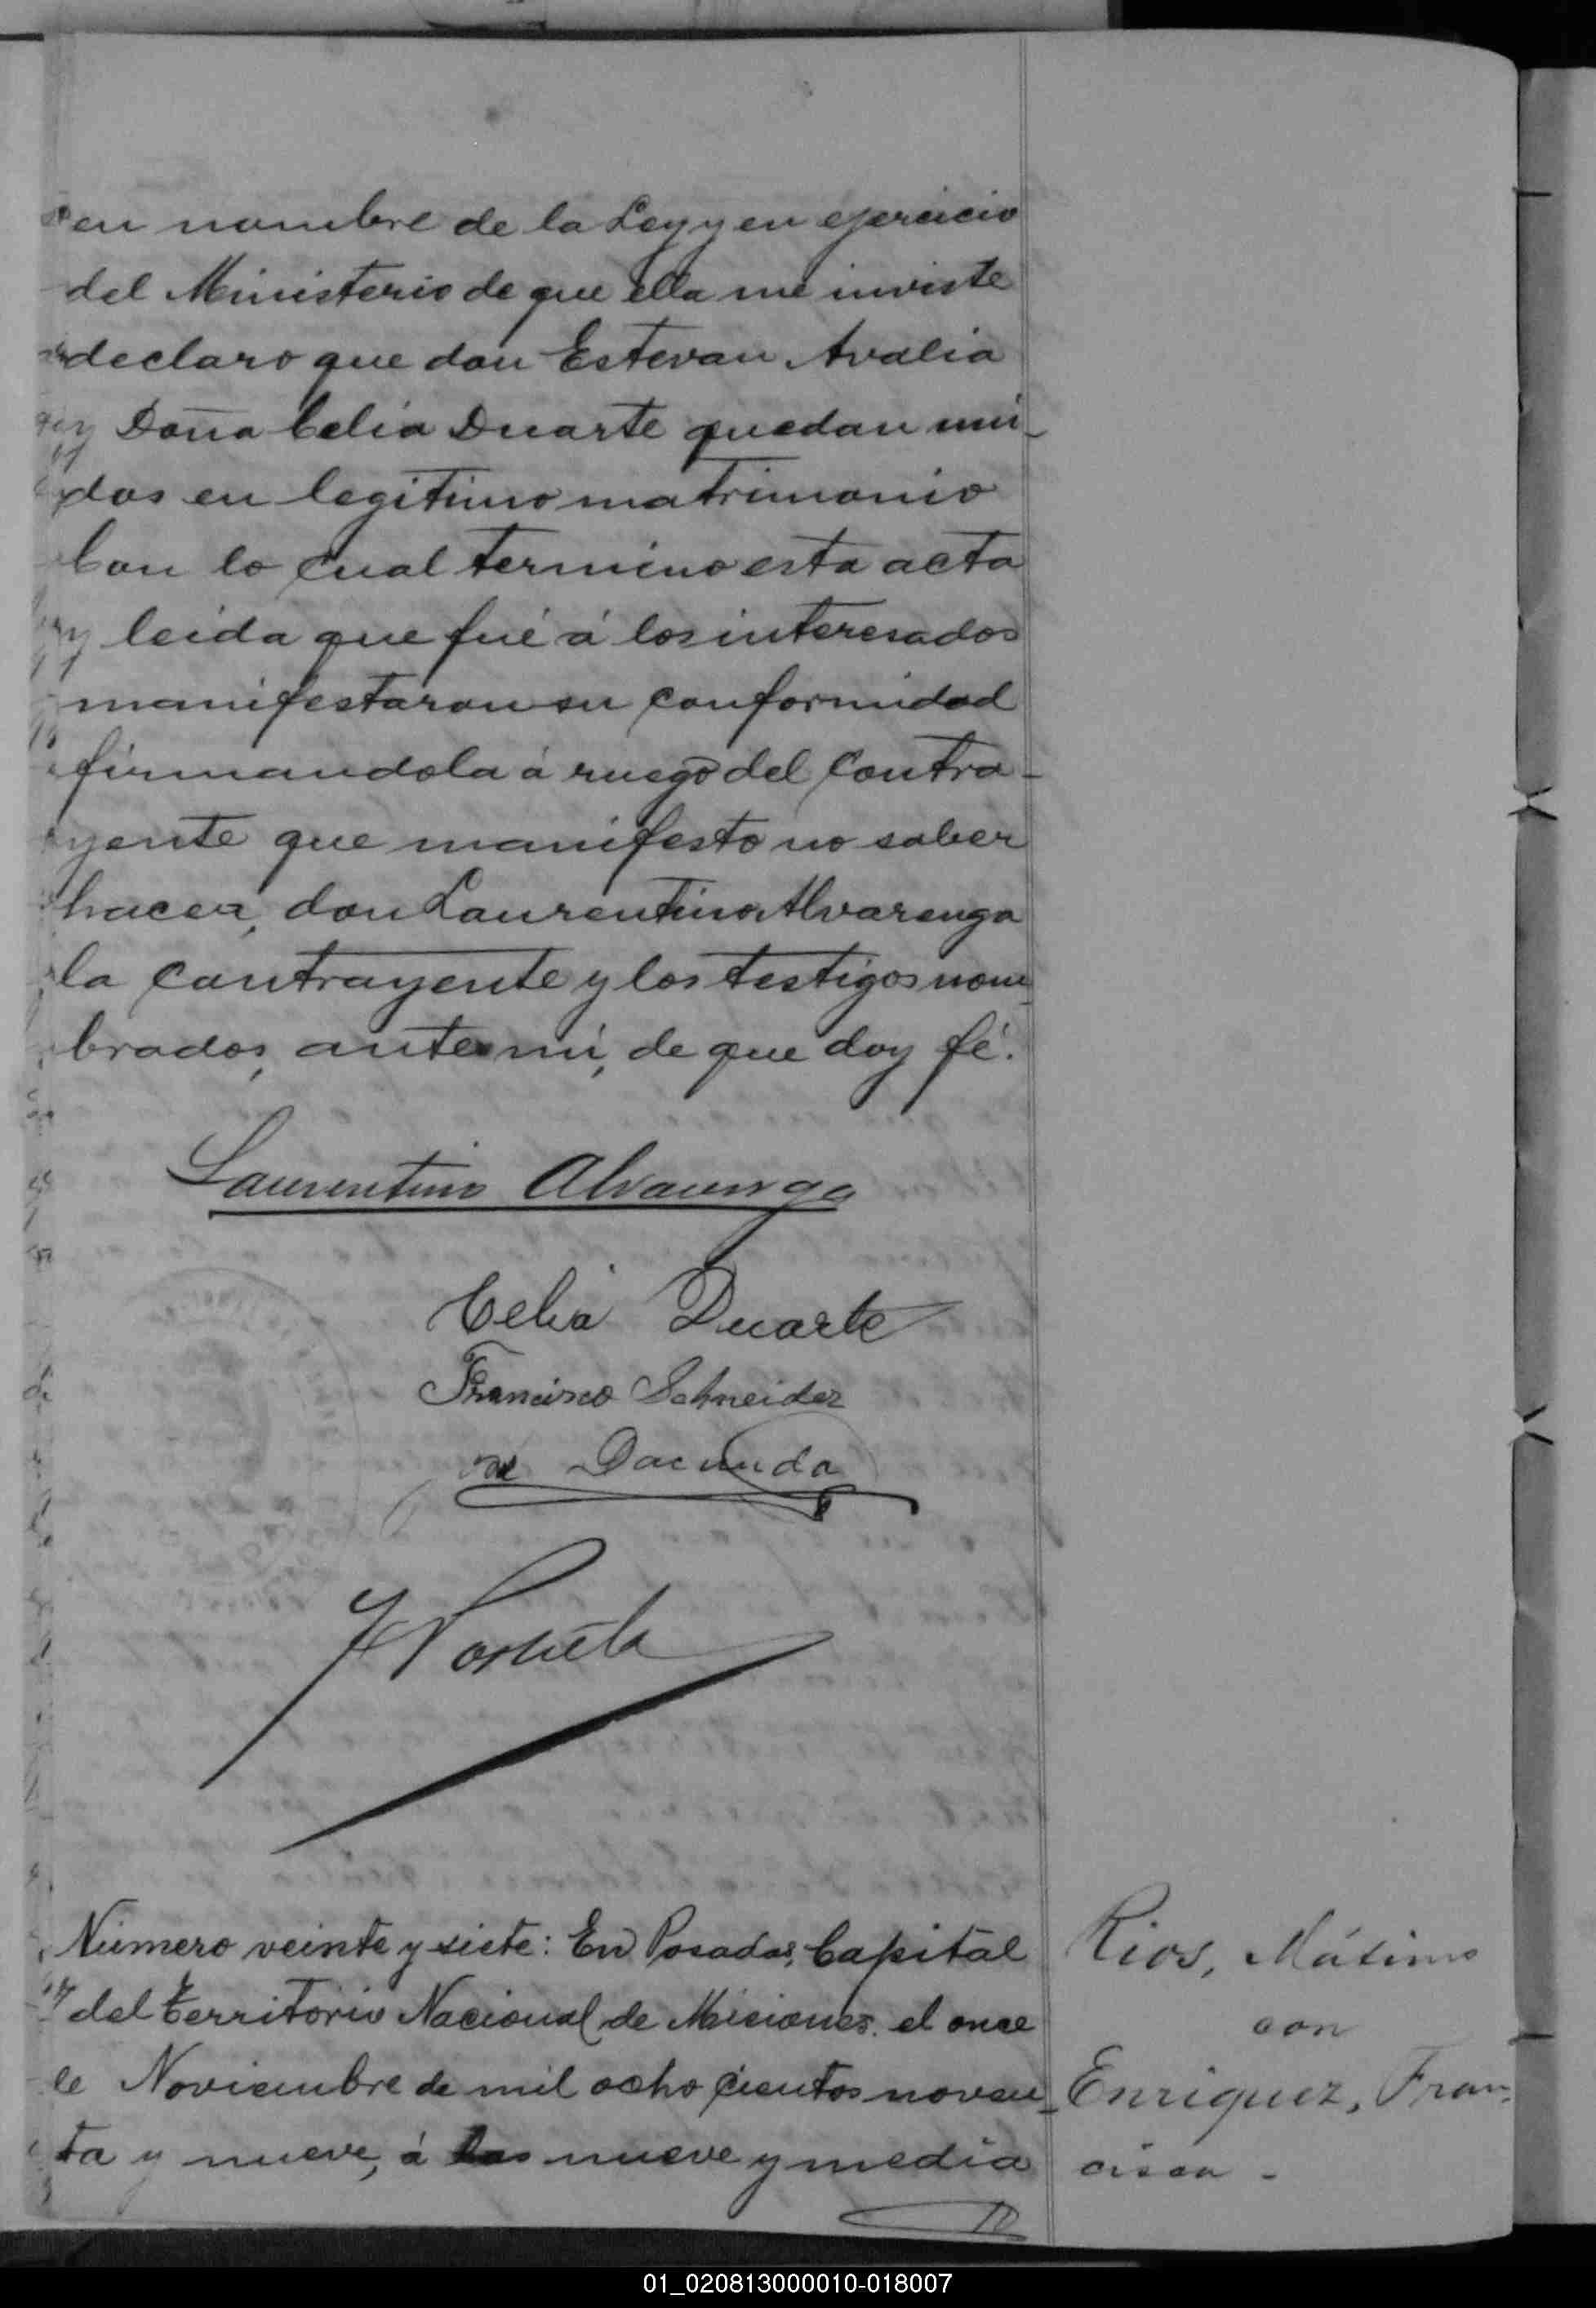 en nombre de la Ley y en ejercicio
del Ministerio de que ella me inviste
declaro que don Estevan Avalia
y Doña Celia Duarte quedan uni-
dos en legitimo matrimonio
Con lo cual termino esta acta
y leida que fué á los interesados
manifestaron su conformidad
firmandola á ruego del Contra-
yente que manifesto no saber
hacer, don Laurentino Alvarenga
la contrayente y los testigos nom-
brados, ante mi, de que doy fé.
Laurentino Alvarenga
Celia Duarte
Francisco Schneider
Dacunda
Número veinte y siete: En Posadas, Capital
del territorio Nacional de Misiones, el once
de Noviembre de mil ocho cientos noven-
ta y nueve, á las nueve y media
Rios, Máximo
con
Enriquez, Fran-
cisca -
01_020813000010-018007